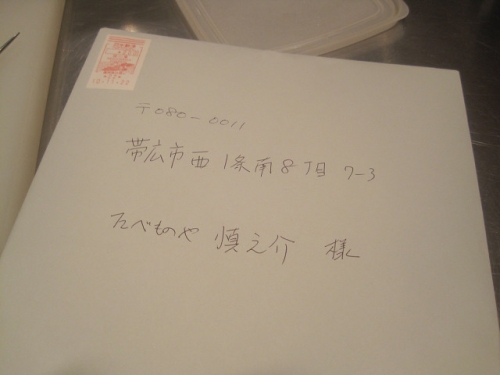 〒080-0011
帯広市西1条南8丁目 7-3
たべものや 慎之介 様